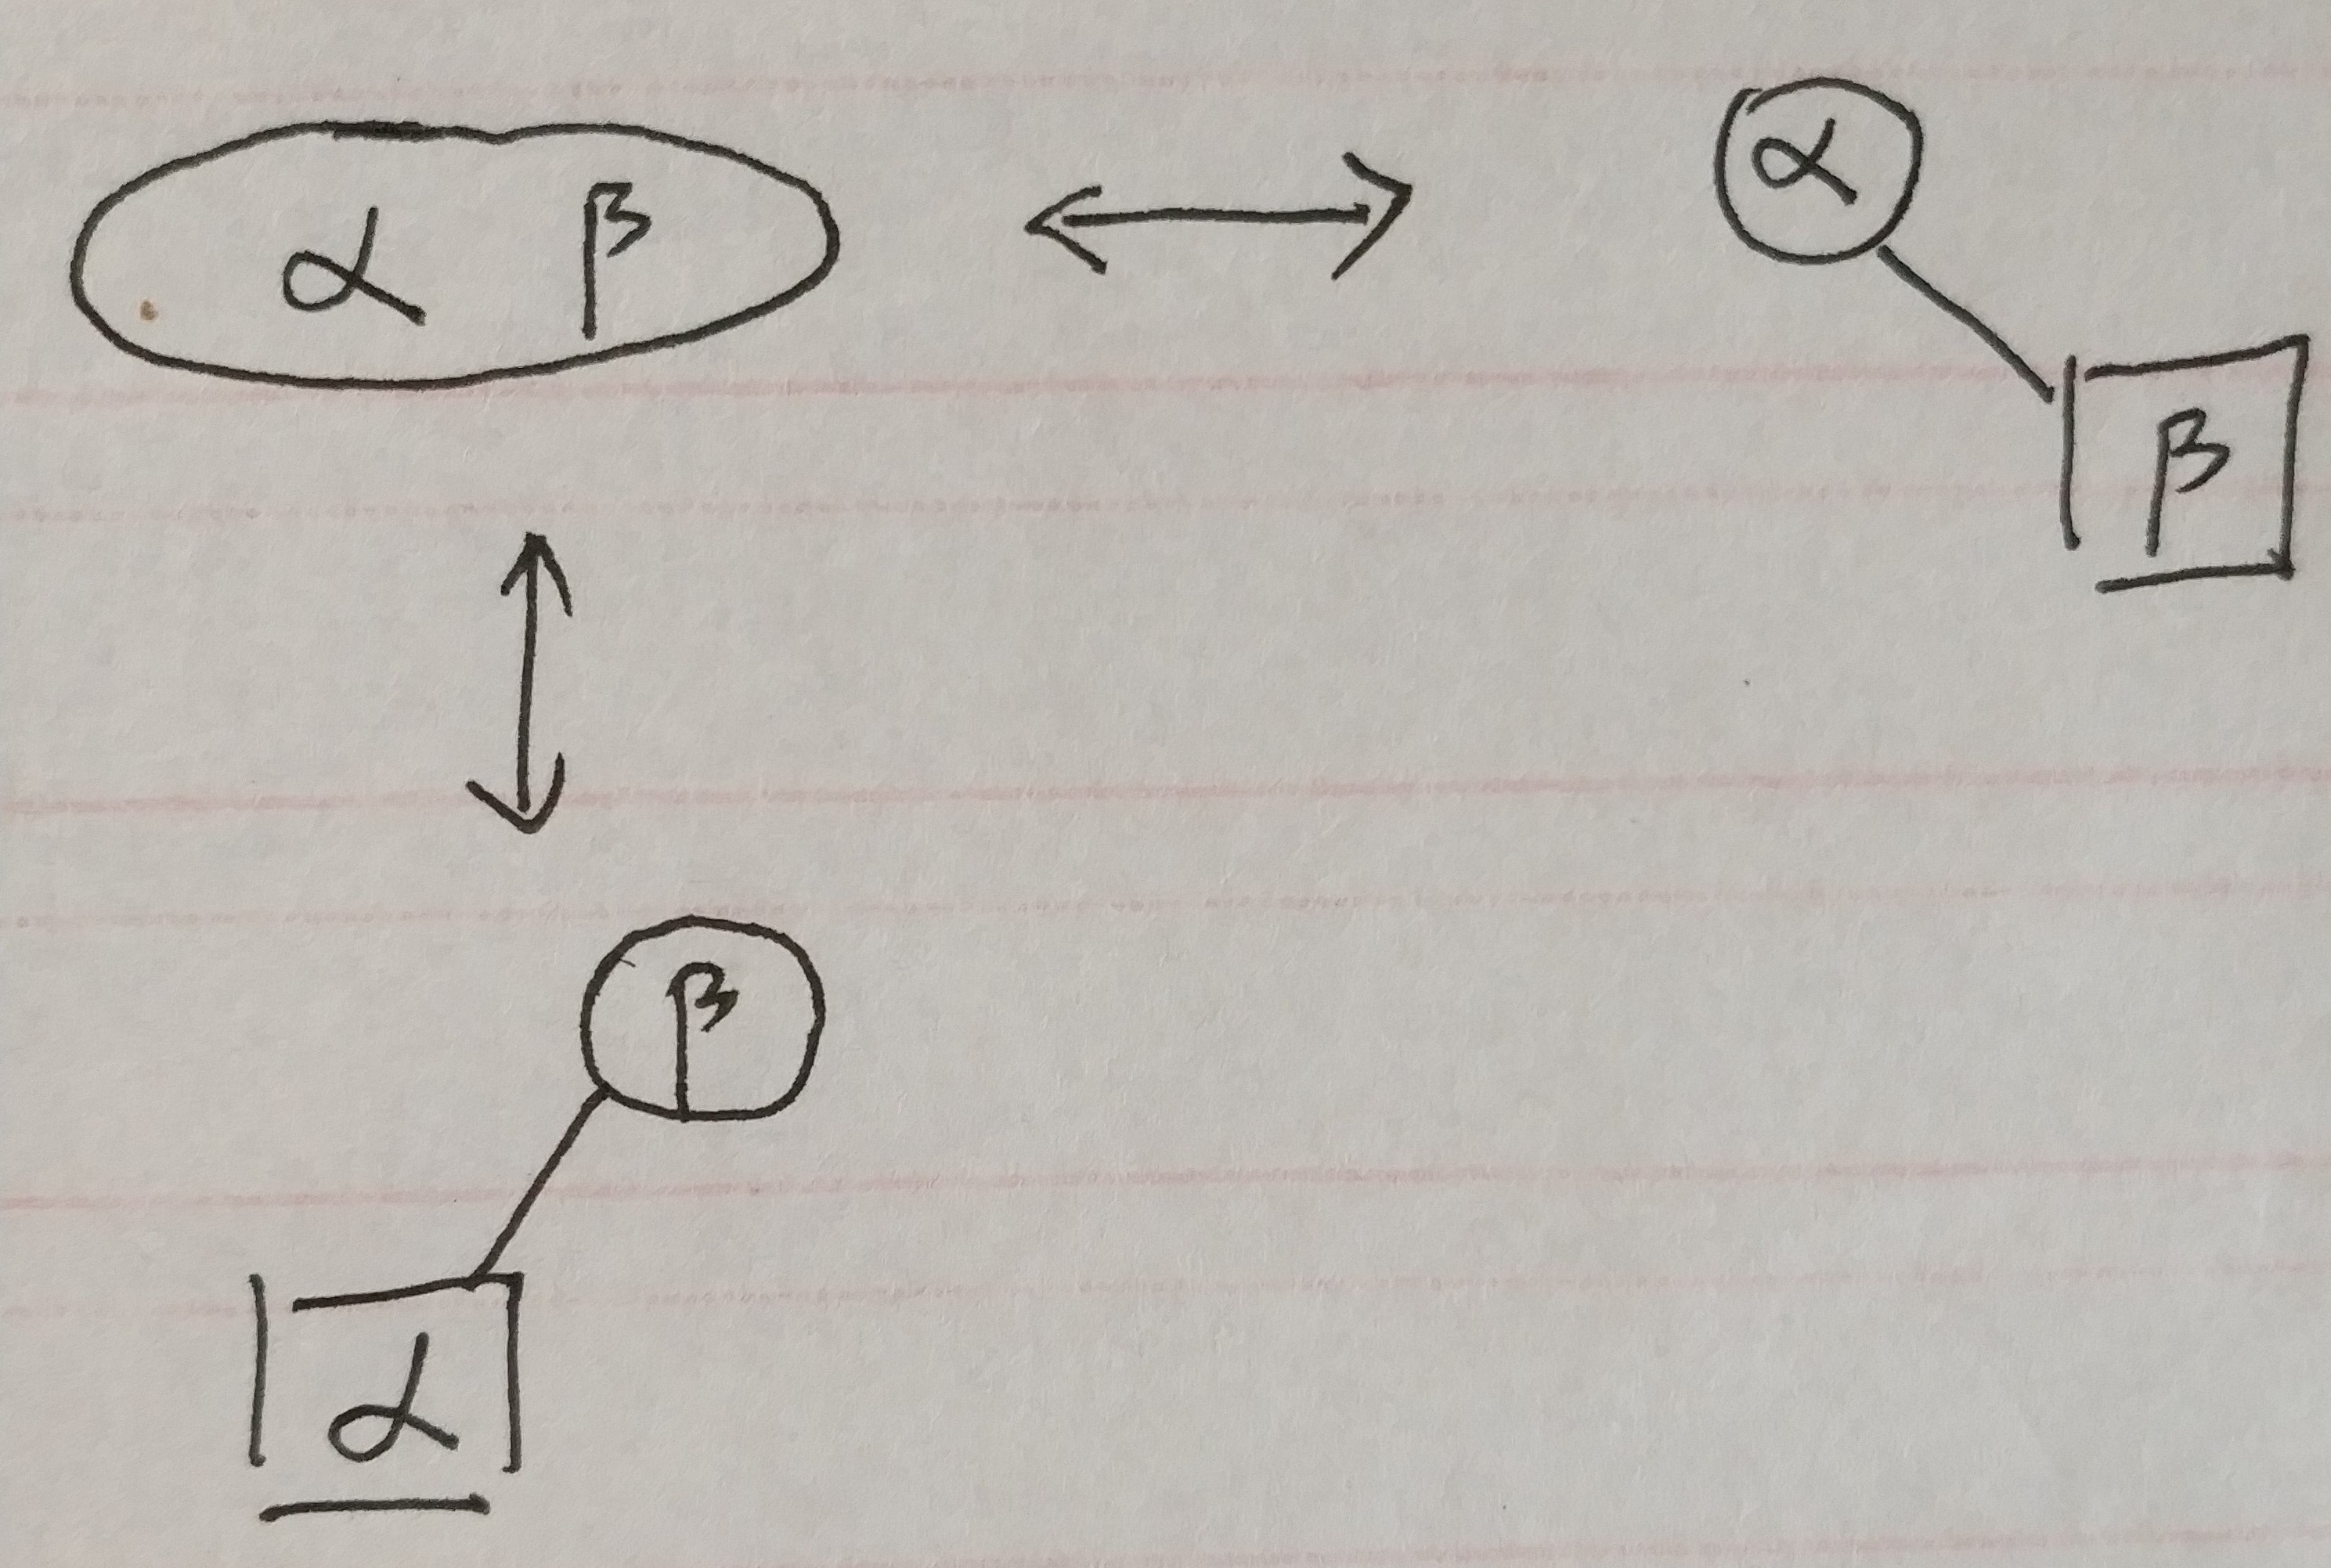 α β
α
β
β
α